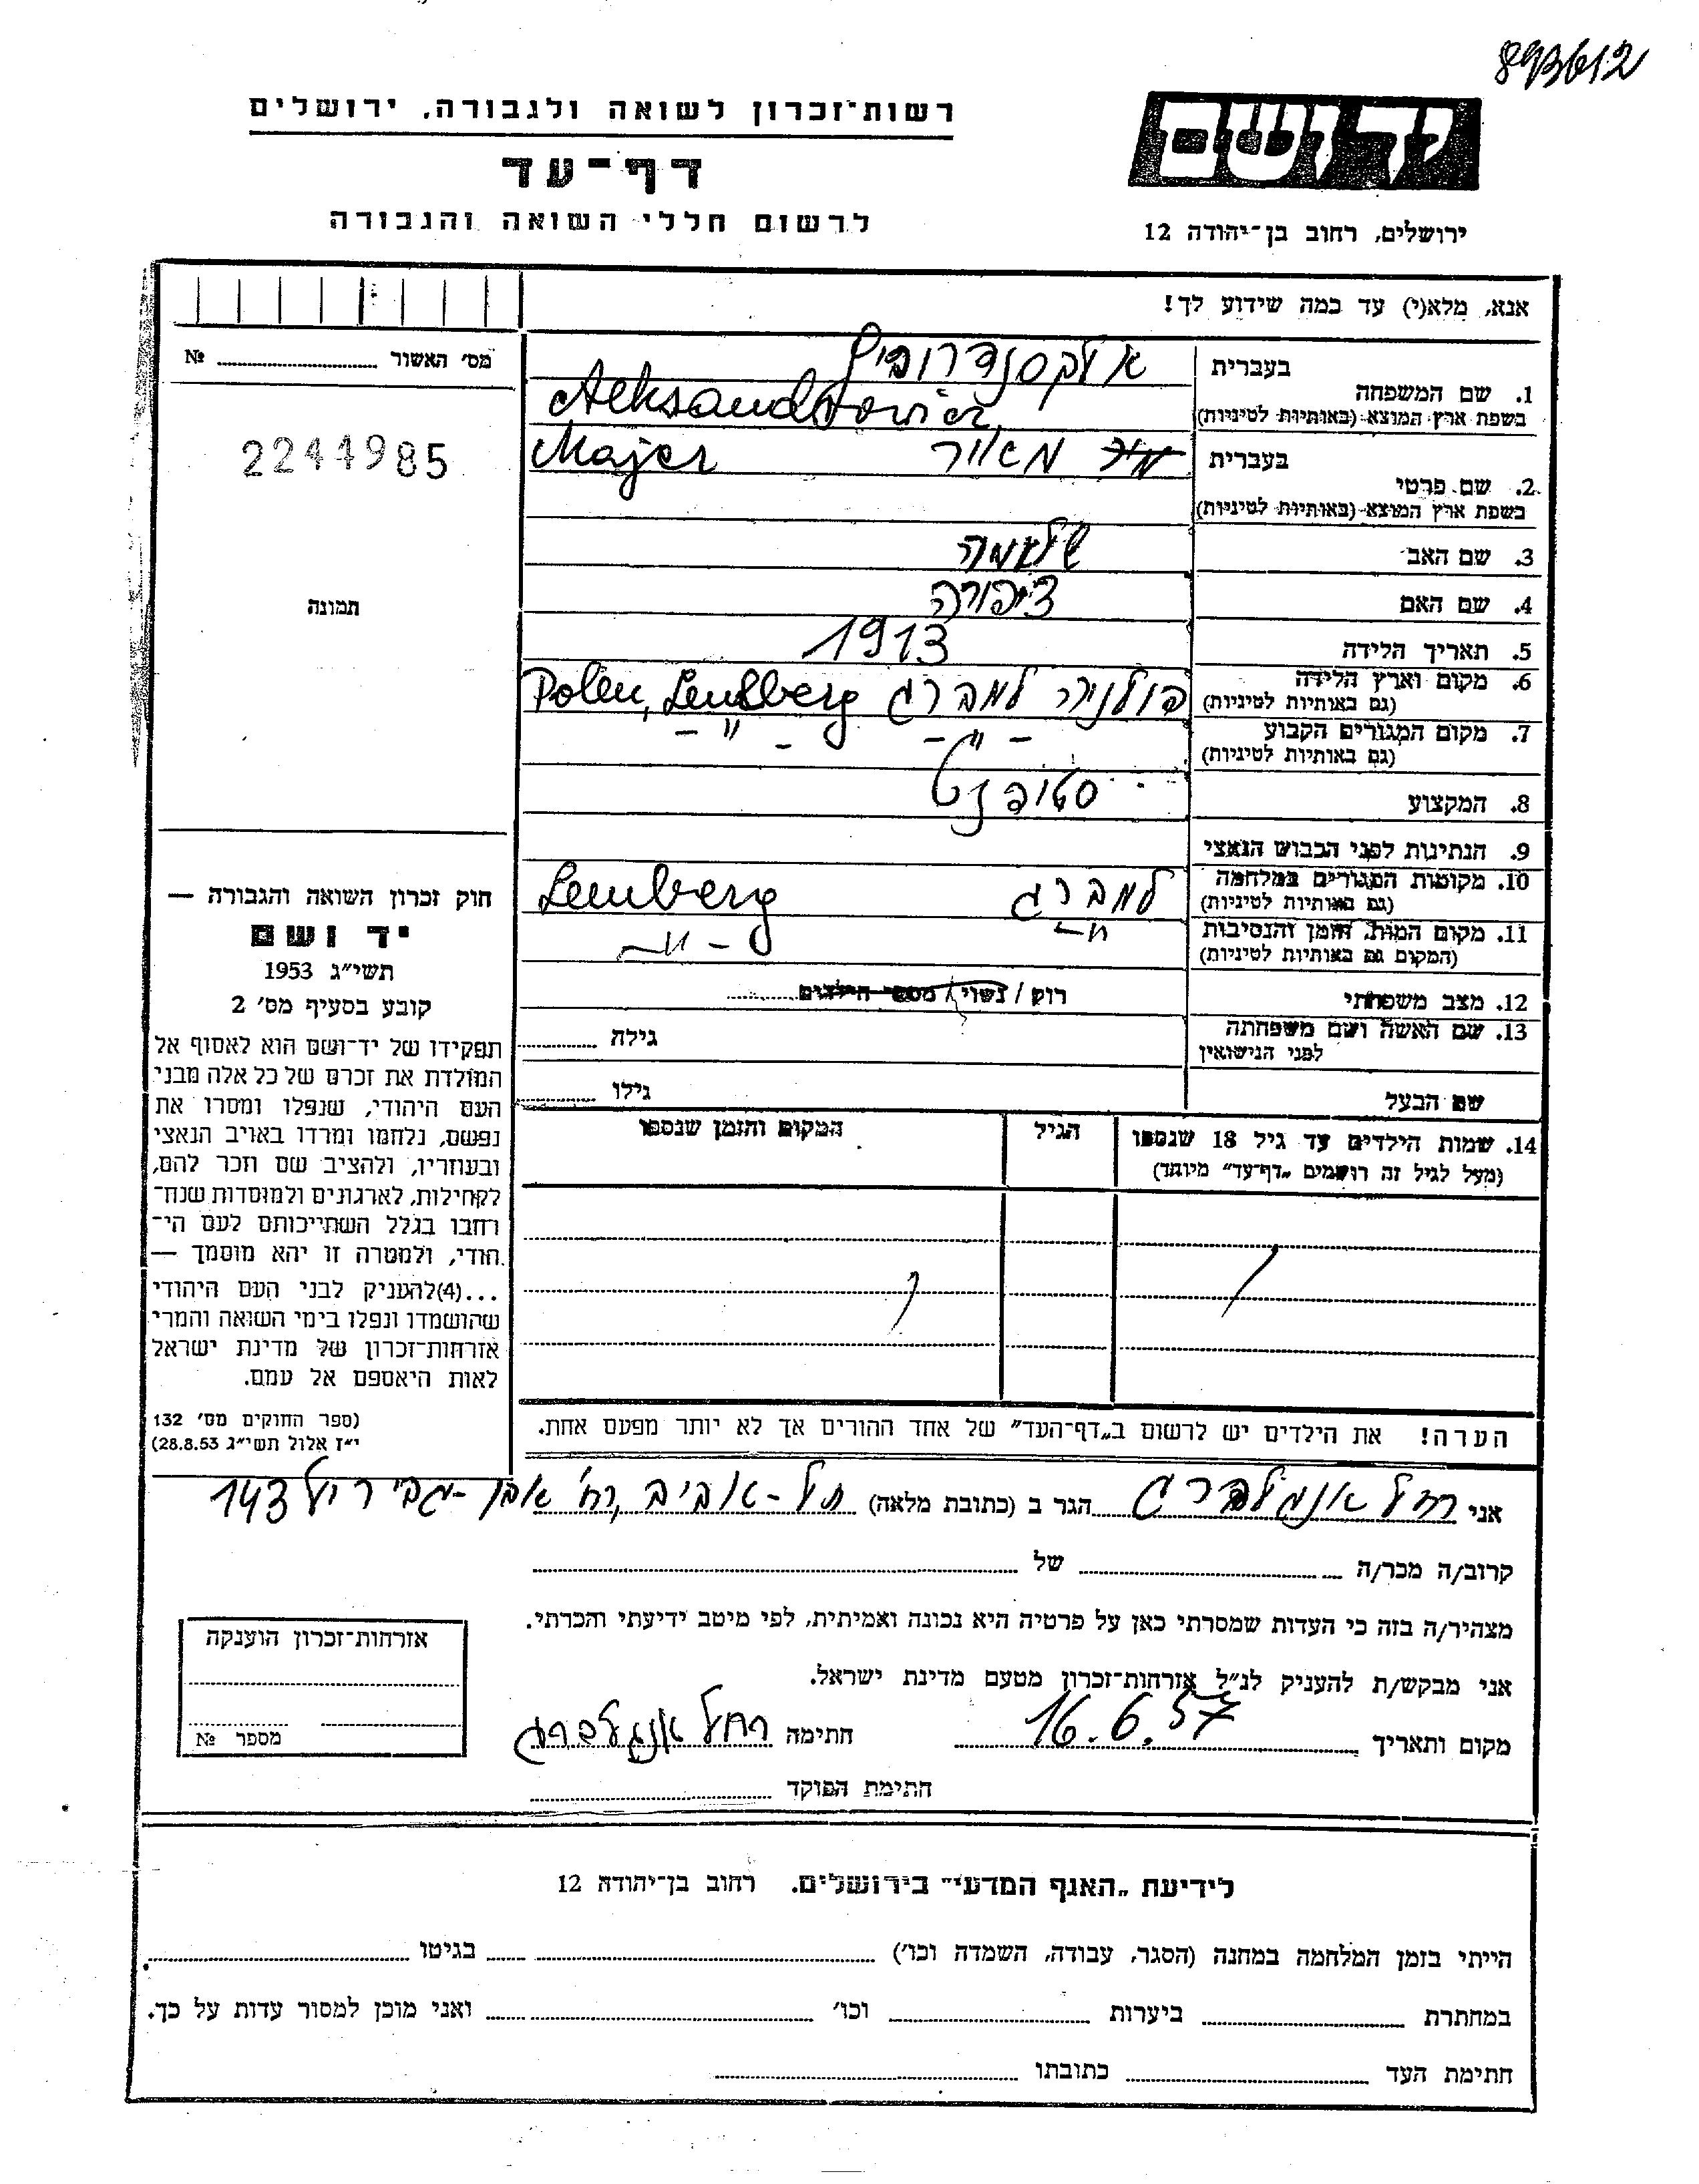 893612
רשות־זכרון לשואה ולגבורה, ירושלים
דף־עד
לרשום חללי השואה והגבורה
יד ושם
ירושלים, רחוב בן־יהודה 12
אנא, מלא(י) עד כמה שידוע לך!
מס' האשור № 
2244985
תמונה
בעברית אלקסנדרוביץ
1. שם המשפחה
בשפת ארץ המוצא (באותיות לטיניות) Aleksandrowicz
בעברית מאיר Majer
2. שם פרטי
בשפת ארץ המוצא (באותיות לטיניות)
3. שם האב שלאמה
4. שם האם ציפורה
5. תאריך הלידה 1913
6. מקום וארץ הלידה פולניה למברג Polen, Lemberg
(גם באותיות לטיניות)
7. מקום המגורים הקבוע -"- -"-
(גם באותיות לטיניות)
8. המקצוע סטודנט
9. הנתינות לפני הכבוש הנאצי
10. מקומות המגורים במלחמה למברג Lemberg
(גם באותיות לטיניות)
11. מקום המות, הזמן והנסיבות -"- -"-
(המקום גם באותיות לטיניות)
12. מצב משפחתי רוק / נשוי / מספר הילדים
13. שם האשה ושם משפחתה גילה
לפני הנישואין
שם הבעל גילו
14. שמות הילדים עד גיל 18 שנספו הגיל המקום והזמן שנספו
(מעל לגיל זה רושמים „דף־עד" מיוחד)
הערה! את הילדים יש לרשום ב„דף־העד" של אחד ההורים אך לא יותר מפעם אחת.
חוק זכרון השואה והגבורה —
יד ושם
תשי"ג 1953
קובע בסעיף מס' 2
תפקידו של יד־ושם הוא לאסוף אל
המולדת את זכרם של כל אלה מבני
העם היהודי, שנפלו ומסרו את
נפשם, נלחמו ומרדו באויב הנאצי
ובעוזריו, ולהציב שם וזכר להם,
לקהילות, לארגונים ולמוסדות שנח־
רחבו בגלל השתייכותם לעם הי־
הודי, ולמטרה זו יהא מוסמך —
...(4)להעניק לבני העם היהודי
שהושמדו ונפלו בימי השואה והמרי
אזרחות־זכרון של מדינת ישראל
לאות היאספם אל עמם.
(ספר החוקים מס' 132
י"ז אלול תשי"ג 28.8.53)
אני רחל אנגלברג הגר ב (כתובת מלאה) תל-אביב, רח' אבן-גבירול 143
קרוב/ה מכר/ה של
מצהיר/ה בזה כי העדות שמסרתי כאן על פרטיה היא נכונה ואמיתית, לפי מיטב ידיעתי והכרתי.
אני מבקש/ת להעניק לנ"ל אזרחות־זכרון מטעם מדינת ישראל.
מקום ותאריך 16.6.57 חתימה רחל אנגלברג
חתימת הפוקד
אזרחות־זכרון הוענקה
מספר №
לידיעת „האגף המדעי" בירושלים. רחוב בן־יהודה 12
הייתי בזמן המלחמה במחנה (הסגר, עבודה, השמדה וכו') בגיטו
במחתרת ביערות וכו' ואני מוכן למסור עדות על כך.
חתימת העד כתובתו